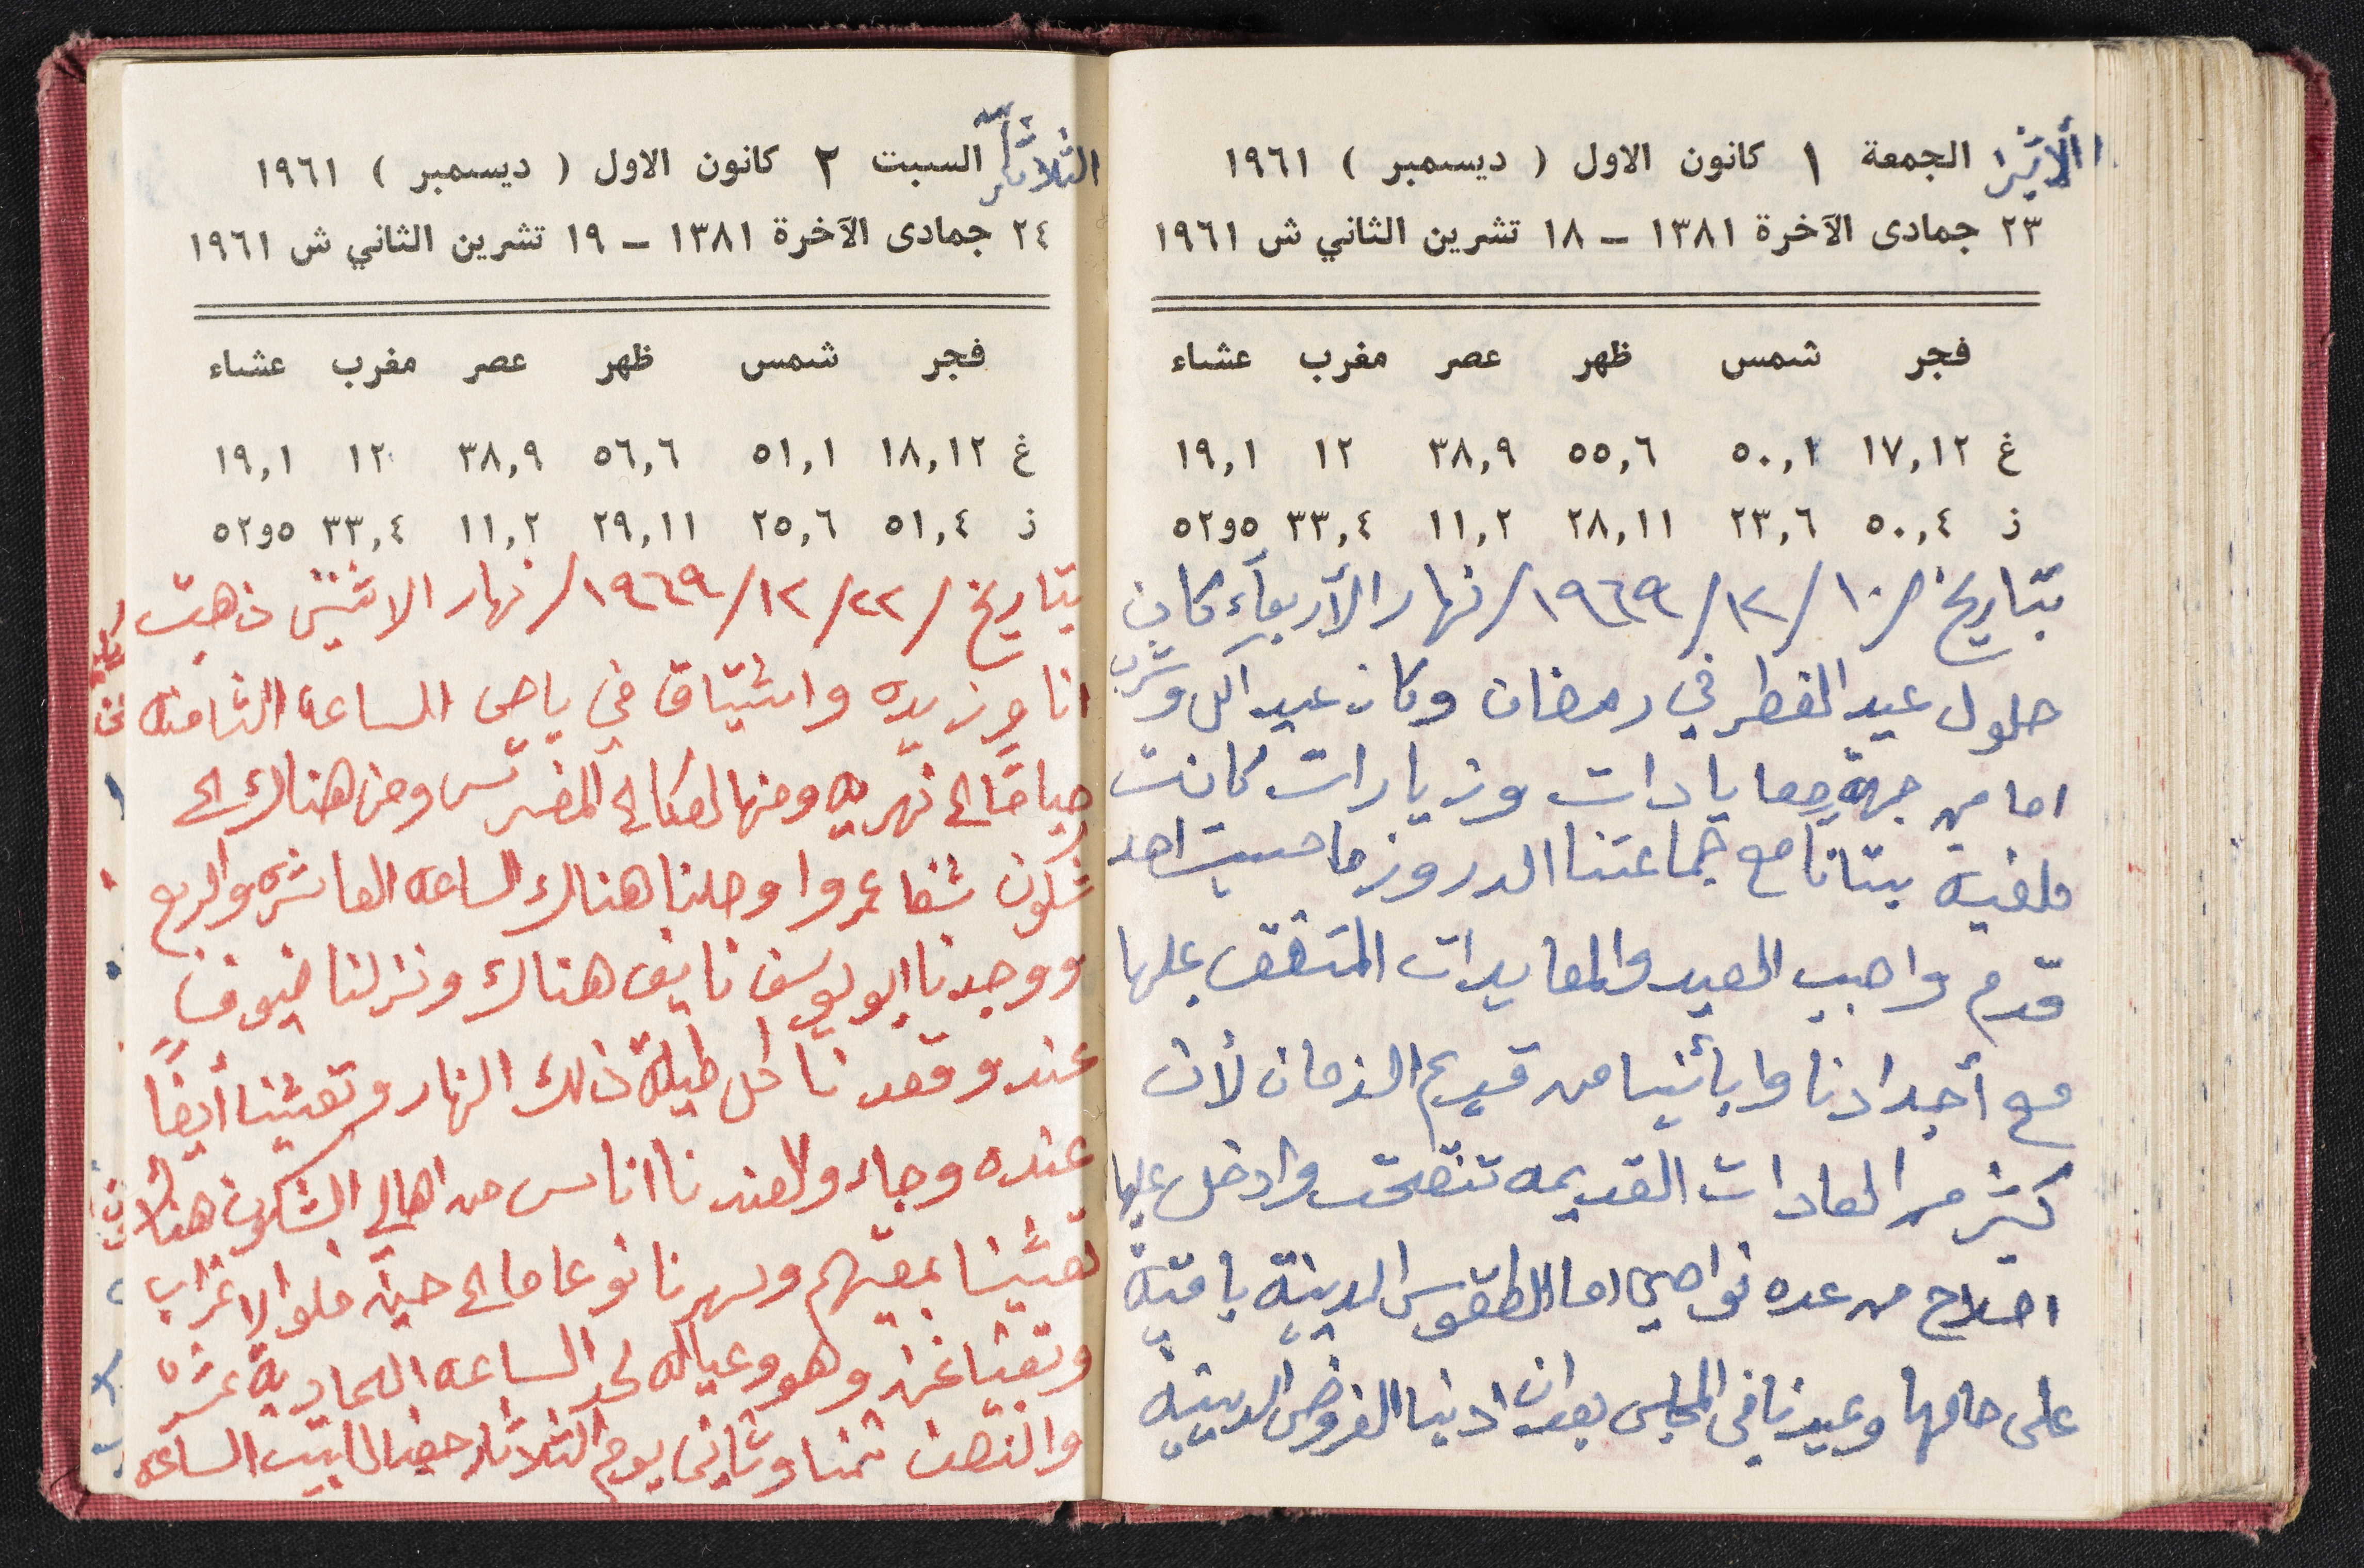 الاثنين الجمعة ١ كانون الاول ( ديسمبر ) ١٩٦١
٢٣ جمادى الآخرة ١٣٨١ – ١٨ تشرين الثاني ش ١٩٦١
فجر شمس ظهر عصر مغرب عشاء
غ ١٧,١٢ ٥٠,١ ٥٥,٦ ٣٨,٩ ١٢ ١٩,١
ز ٥٠,٤ ٢٣,٦ ٢٨,١١ ١١,٢ ٣٣,٤ ٥و٥٢
بتاريخ /١٠/١٢/١٩٦٩/ نهار الأربعاء كان
حلول عيد الفطر في رمضان وكان عيد اكل وشرب
اما من جهة معايادات وزيارات كانت
ملغيه بتاتا مع جماعتنا الدروز ما حسيت احد
قدم واجب العيد والمعايدات المتفق علها
مع أجدادنا وابأئنا من قديم الزمان لأن
كثير من العادات القديمه تنقحت وادخل عليها
اصلاح من عده نواحي اما الطقوس الدينية باقية
على حالها وعيدنا في المجلس بعد ان ادينا الفروض الدينية
الثلاثاء السبت ٢ كانون الاول ( ديسمبر ) ١٩٦١
٢٤ جمادى الآخرة ١٣٨١ – ١٩ تشرين الثاني ش ١٩٦١
فجر شمس ظهر عصر مغرب عشاء
غ ١٨,١٢ ٥١,١ ٥٦,٦ ٣٨,٩ ١٢ ١٩,١
ز ٥١,٤ ٢٥,٦ ٢٩,١١ ١١,٢ ٣٣,٤ ٥و٥٢
بتاريخ /٢٢/١٢/١٩٦٩/ نهار الاثنين ذهبت
انا وزيده واشتياق في باص الساعة الثامنه
صباحًا الى نهريه ومنها لعكا الى المفرتس ومن هناك الى
شكون شفا عمروا وصلنا هناك الساعه العاشره والربع
ووجدنا ابو يوسف نايف هناك ونزلنا ضيوف
عندو وقعدنا كل طيلة ذلك النهار وتعشينا أيضًا
عنده وجاء ولعندنا اناس من اهالي الشكون هناك
تعشينا بمعيتهم وسهرنا نوعا ما الى حين فلوا الاغراب
وبقينا نحن وهو وعياله لحد الساعه الحادية عشرة
والنصف نمنا وثاني يوم الثلاثاء حضرنا البيت الساعه